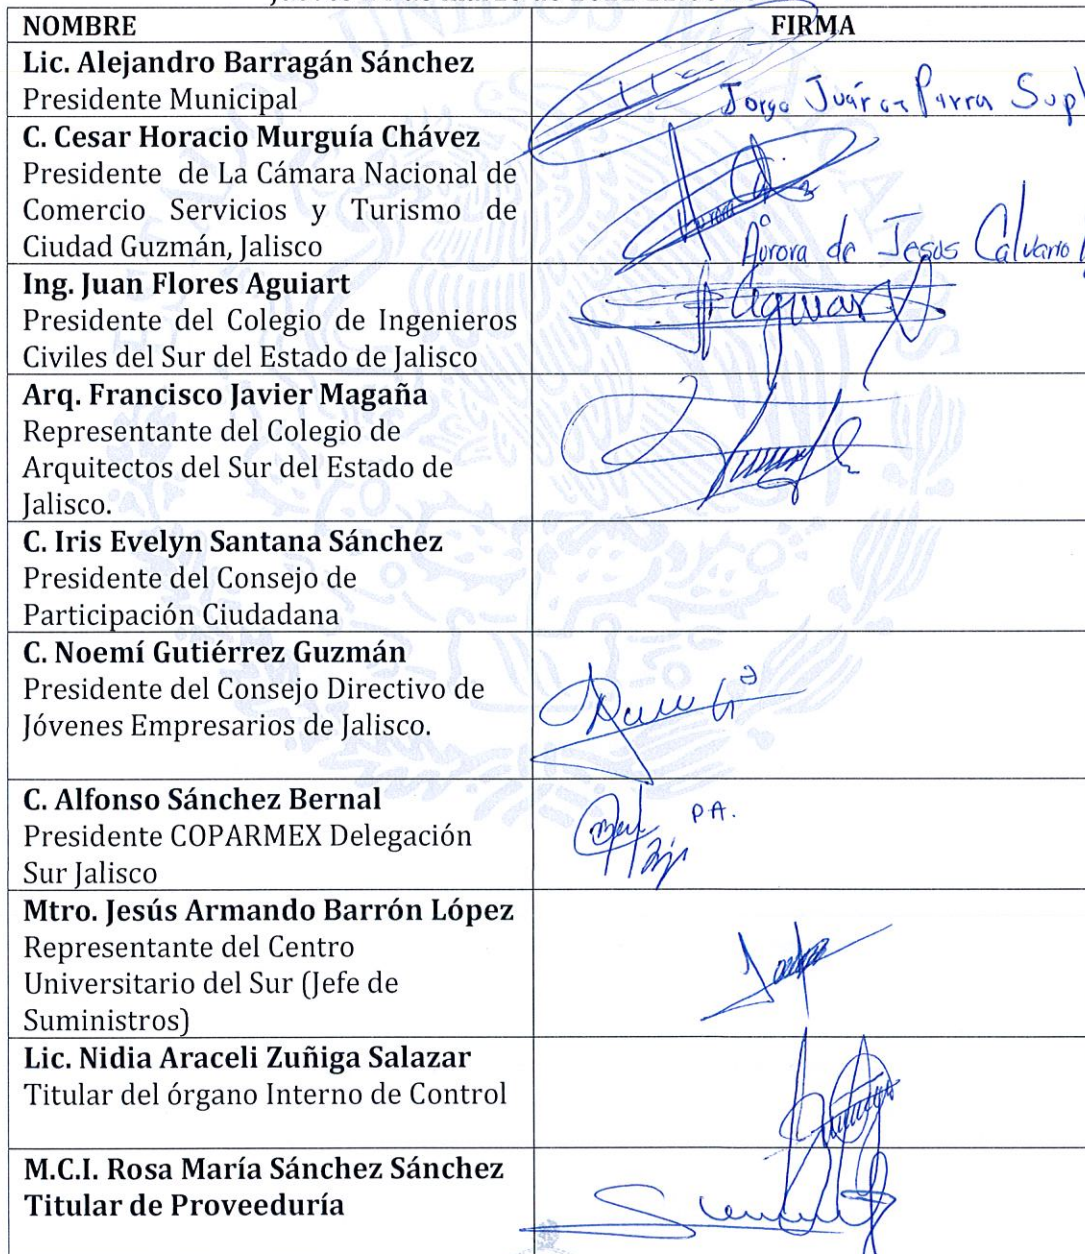 NOMBRE FIRMA
Lic. Alejandro Barragán Sánchez
Presidente Municipal
Jorge Juárez Parra Supl
C. Cesar Horacio Murguía Chávez
Presidente de La Cámara Nacional de
Comercio Servicios y Turismo de
Ciudad Guzmán, Jalisco
Aurora de Jesus Calvario
Ing. Juan Flores Aguiart
Presidente del Colegio de Ingenieros
Civiles del Sur del Estado de Jalisco
Arq. Francisco Javier Magaña
Representante del Colegio de
Arquitectos del Sur del Estado de
Jalisco.
C. Iris Evelyn Santana Sánchez
Presidente del Consejo de
Participación Ciudadana
C. Noemí Gutiérrez Guzmán
Presidente del Consejo Directivo de
Jóvenes Empresarios de Jalisco.
C. Alfonso Sánchez Bernal
Presidente COPARMEX Delegación
Sur Jalisco
PA.
Mtro. Jesús Armando Barrón López
Representante del Centro
Universitario del Sur (Jefe de
Suministros)
Lic. Nidia Araceli Zuñiga Salazar
Titular del órgano Interno de Control
M.C.I. Rosa María Sánchez Sánchez
Titular de Proveeduría